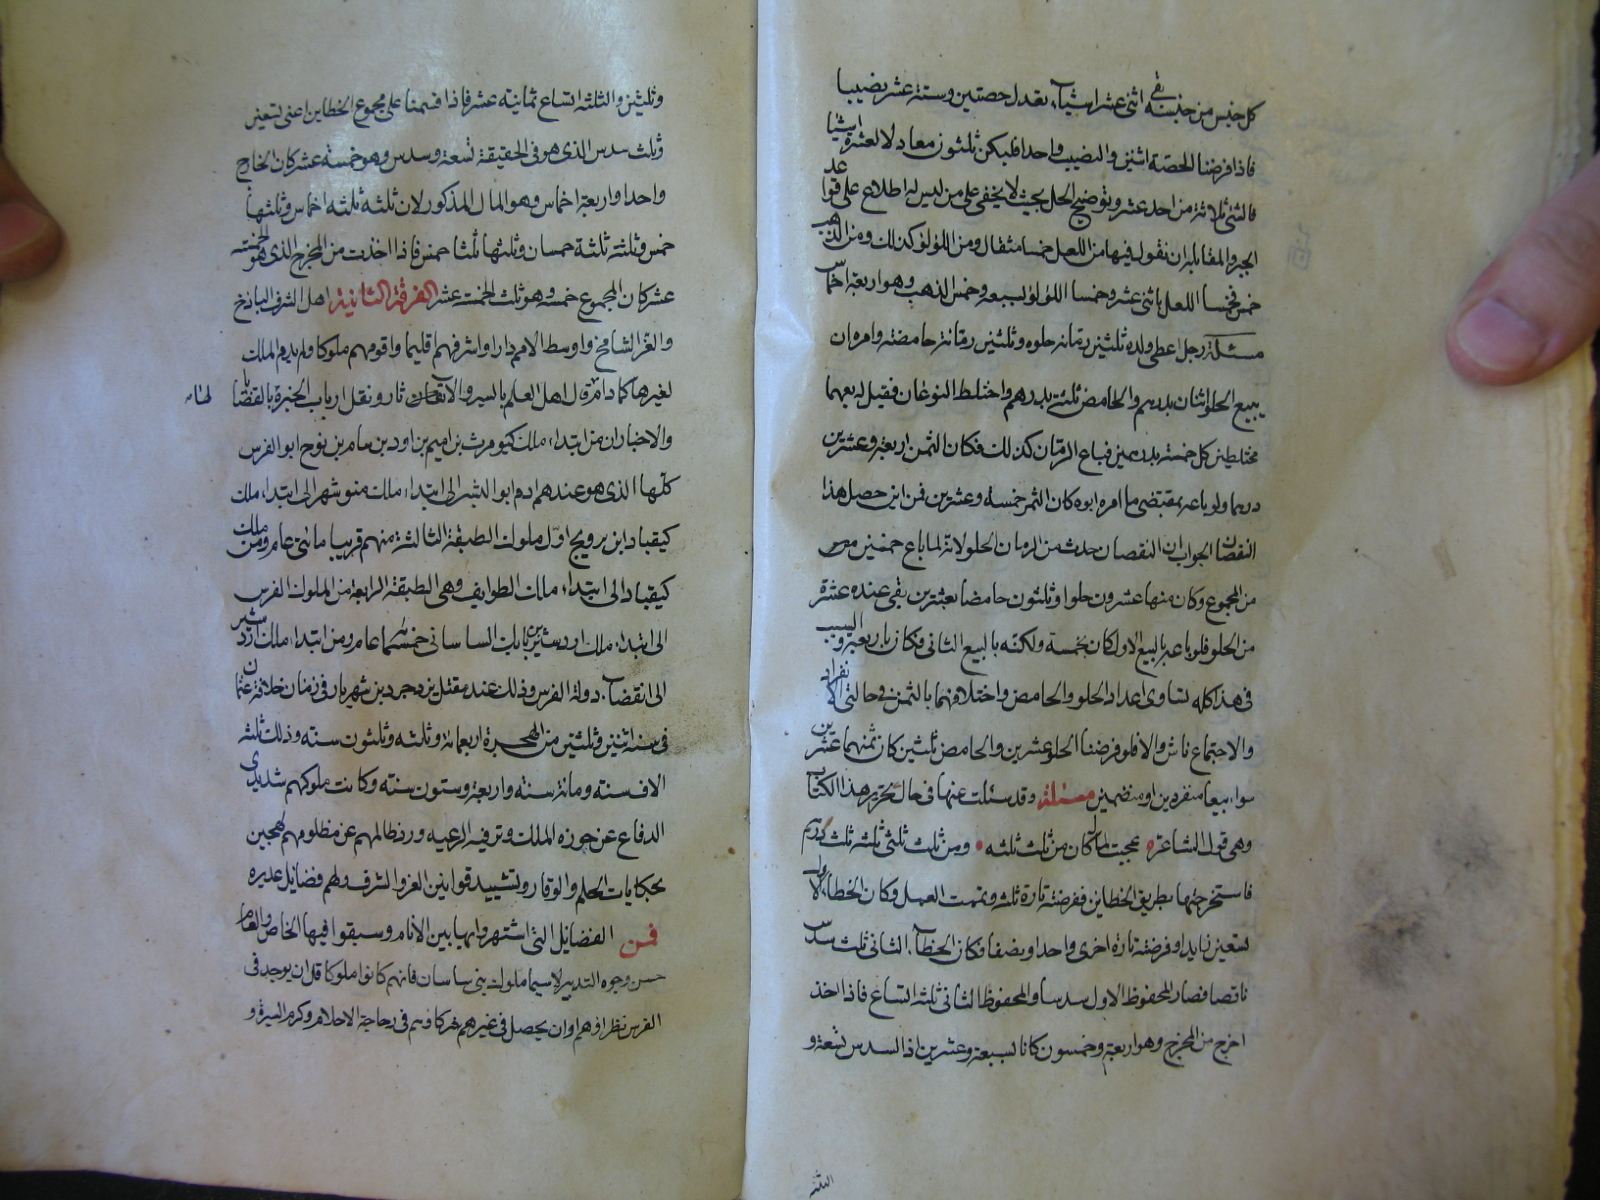 كل جنس من جنسه بقى اثنى عشر اشياء بعدل حصتين وستة عشر نصيبا
فاذا فرضنا الحصة اثنين والنصيب واحدا فليكن ثلثون معادلا لعشرة اشياء
فالشئ ثلاثة من احد عشر وتوضيح الحل بحيث لا يخفى على من ليس له اطلاع على قواعد
الجبر والمقابلة ان نقول فيها من اللعل خمسا مثقال ومن اللؤلؤ كذلك ومن الذهب
خمس فخمسا اللعل باثنى عشر وخمسا اللؤلؤ بسبعة وخمس الذهب وهو اربعة اخماس
مسئلة رجل اعطى ولده ثلثين رمانة حلوه وثلثين رمانة حامضه وامره ان
يبيع الحلو اثنان بدرهم والحامض ثلثة بدرهم واختلط النوعان فقيل له بعهما
مختلطين كل خمسة بدرهمين فباع الرمان كذلك فكان الثمن اربعة وعشرين
درهما ولو باعه بمقتضى ما امره ابوه كان الثمن خمسة وعشرين فمن اين حصل هذا
النقصان الجواب ان النقصان حدث من الرمان الحلو لانه لما باع خمسين
من المجموع وكان منها عشرون حلوا وثلثون حامضا بعشرين بقى عنده عشرة
من الحلو فلو باعه بالبيع الاول كان بخمسة ولكنه بالبيع الثانى فكان باربعة والسبب
فى هذا كله تساوى اعداد الحلو والحامض واختلافهما بالثمن فى حالتى الانفراد
والاجتماع ناش والا فلو فرضنا الحلو عشرين والحامض ثلثين كان ثمنهما عشرين
سواء بيعا منفردين او منضمين مسئلة وقد سئلت عنها فى حال تحرير هذا الكتاب
وهى قول الشاعر عجبت لمال كان من ثلث ثلثه ومن ثلث ثلثى ثلثه ثلث درهم
فاستخرجتها بطريق الخطاين ففرضته تارة ثلثه وتممت العمل وكان الخطاء الاول
تسعين زايدا وفرضته تارة اخرى واحدا ونصفا فكان الخطاء الثانى ثلث سدس
ناقصا فصار المحفوظ الاول سدسا والمحفوظ الثانى ثلثه اتساع فاذا اخذ
اخرج من المخرج وهو اربعة وخمسون كانا لسبعة وعشرين اذ السدس تسعة و
الثلثه
وثلثين والثلثه اتساع ثمانية عشر فاذا قسمنا على مجموع الخطاين اعنى تسعين
وثلث سدس الذى هو فى الحقيقة تسعة وسدس وهو خمسة عشر كان الخارج
واحدا واربعة اخماس وهو المال المذكور لان ثلثه ثلثه اخماس وثلثها
خمس وثلثه ثلثة خمسان وثلثها ثلثا خمس فاذا اخذت من المخرج الذى هو الخمسة
عشر كان المجموع خمسه وهو ثلث الخمسة عشر الفرقة الثانية اهل الشرف الباذخ
والعز الشامخ واوسط الامم دارا واشرفهم اقليما واقومهم ملوكا ولم يدم الملك
لغيرها كما دام لاهل العلم بالسير والاثار ونقل ارباب الخبرة بالقضايا
والاخبار ان من ابتداء ملك كيومرث بن اميم بن اود بن سام بن نوح ابو الفرس
كلها الذى هو عندهم ادم ابو البشر الى ابتداء ملك منوشهر الى ابتداء ملك
كيقباد ابن اول ملوك الطبقة الثالثة منهم قريبا مائتى عام ومن ملك
كيقباد الى ابتداء ملك الطوايف وهى الطبقة الرابعة من الملوك الفرس
الى ابتداء ملك اردشير بن بابك الساسانى خمسمائة عام ومن ابتداء ملك اردشير
الى انقضاء دولة الفرس وذلك عند مقتل يزدجرد بن شهريار فى زمان خلافة عثمان
فى سنة اثنين وثلثين من الهجرة اربعمائة وثلثه وثلثون سنة وذلك ثلثة
الاف سنة ومائة سنة واربعة وستون سنة وكانت ملوكهم شديدى
الدفاع عن حوزه الملك وترفيه الرعيه ورد ظالمهم عن مظلومهم لهجين
بحكايات الحلم والوقار وتشييد قوانين العز والشرف ولهم فضايل عديده
فمن الفضايل التى اشتهروا بها بين الانام وسبقوا فيها الخاص والعام
حسن وجوه التدبير لا سيما ملوك بنى ساسان فانهم كانوا ملوكا قل ان يوجد فى
الفرس نظراؤهم او ان يحصل فى غيرهم شركاؤهم فى رجاحة الاحلام وكرم السيرة و